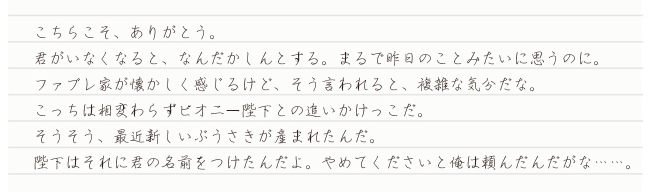 こちらこそ、ありがとう。
君がいなくなると、なんだかしんとする。まるで昨日のことみたいに思うのに。
ファブレ家が懐かしく感じるけど、そう言われると、複雑な気分だな。
こっちは相変わらずピオニー陛下との追いかけっこだ。
そうそう、最近新しいぶうさぎが産まれたんだ。
陛下はそれに君の名前をつけたんだよ。やめてくださいと俺は頼んだんだがな……。